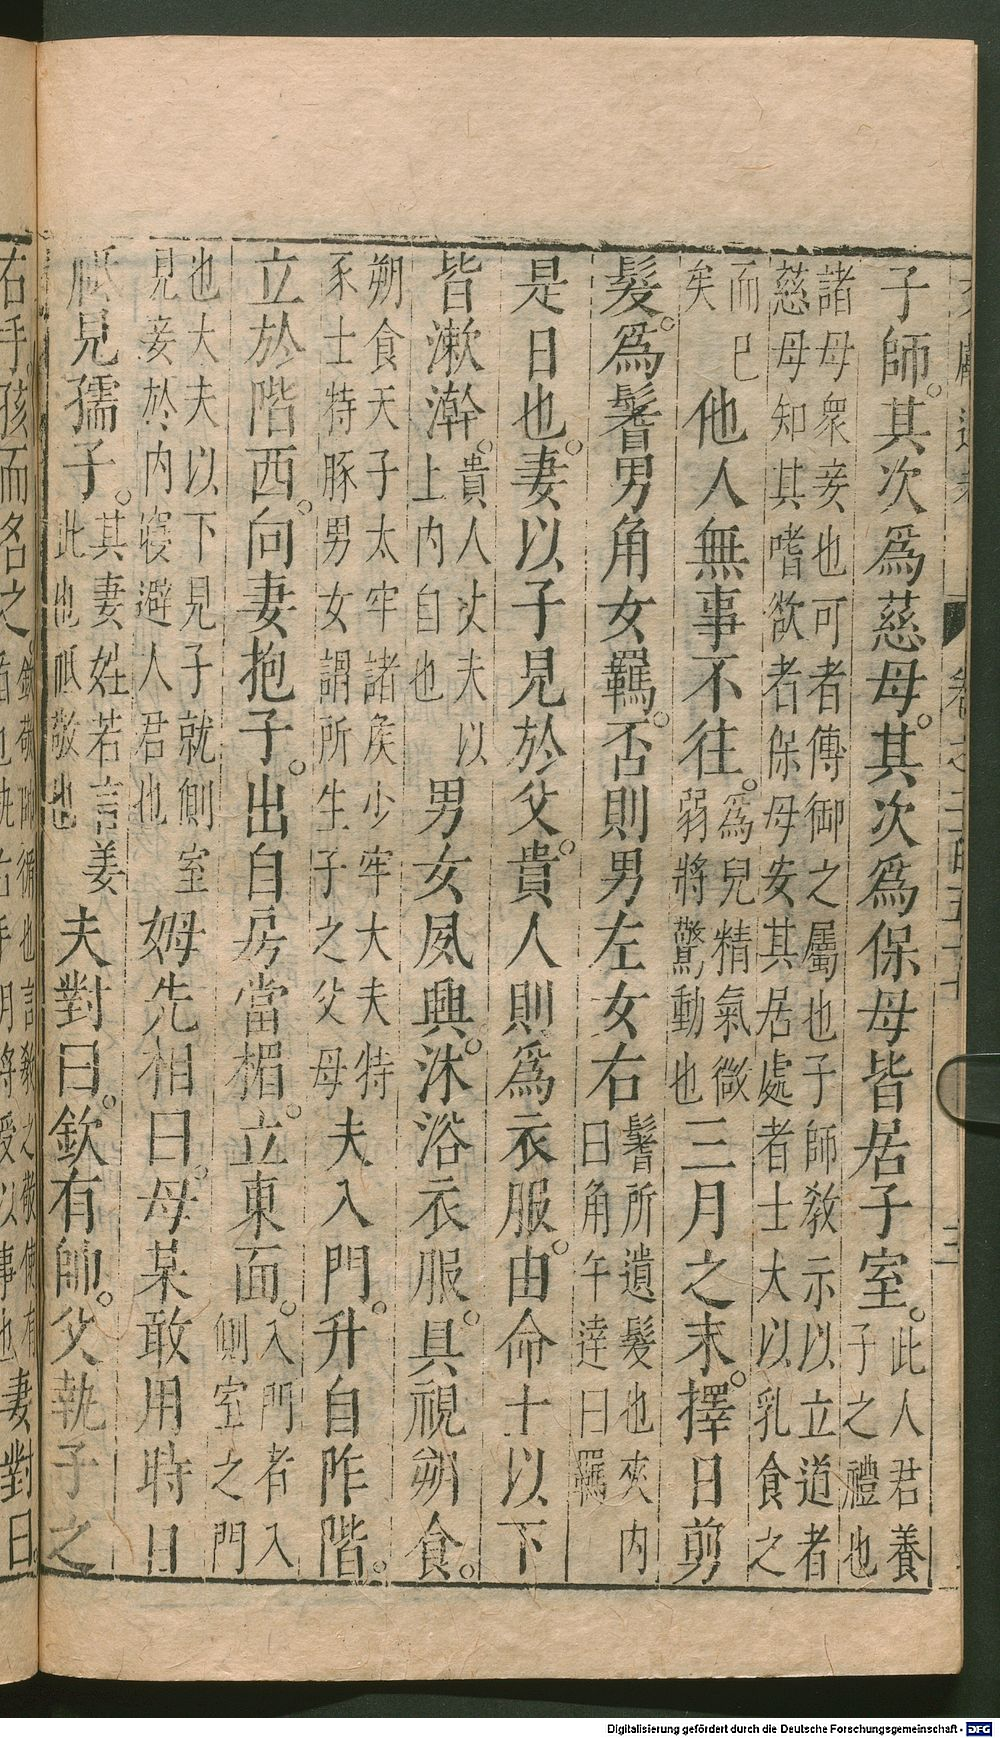 子師。其次爲慈母。其次爲保母皆居子室。此人君養子之禮也
諸母衆妾也可者傅御之屬也子師教示以立道者慈母知其嗜欲者保母安其居處者士大以乳食之
而已矣他人無事不往。爲兒精氣微弱將驚動也三月之末。擇日剪
髮。爲鬌男角女羈。否則男左女右鬌所遺髮也夾内曰角午達曰羈
是日也。妻以子見於父。貴人則爲衣服。由命士以下
皆漱澣。貴人丈夫以上内自也男女夙興。沐浴衣服。具視朔食。
朔食天子太牢諸矦少牢大夫特豕士特豚男女謂所生子之父母夫入門。升自阼階。
立於階西。向妻抱子。出自房當楣。立東面。入門者入側室之門
也大夫以下見子就側室見妾於内寢避人君也姆先相曰。母某敢用時日
祗見孺子。其妻姓若言姜此也祗敬也夫對曰。欽有帥。父執子之
右手。孩而名之欽敬帥循也言敎之敬使有循也執右手明將授以事也妻對曰。
卷之三
三
Digitalisierung gefördert durch die Deutsche Forschungsgemeinschaft - DFG